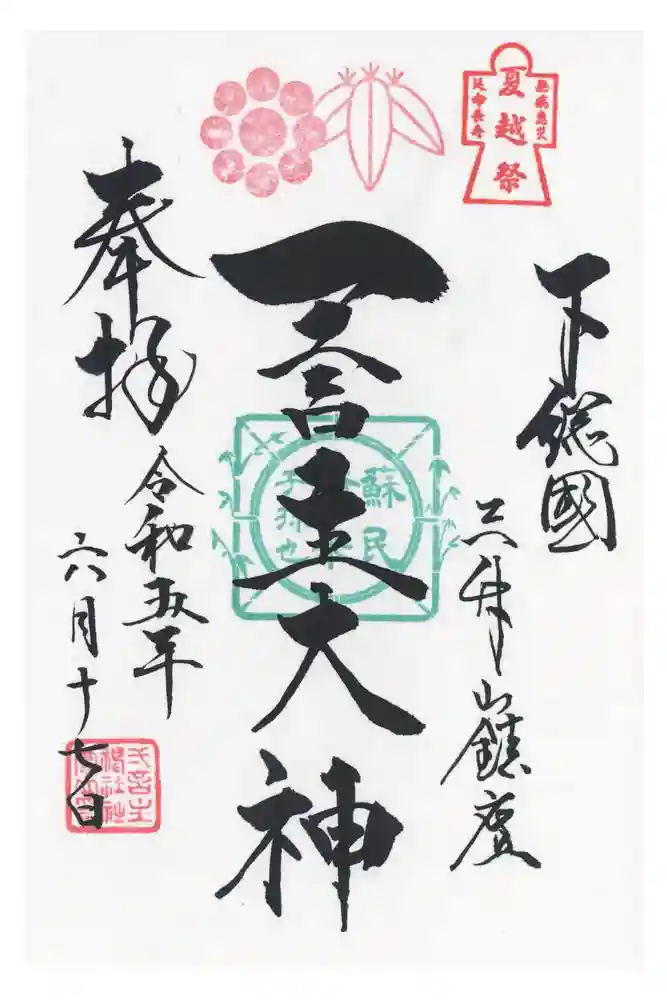 夏越祭
無病息災
延命長寿
下総國
三竹山鎮座
一言主大神
蘇民
子孫也
奉拝
令和五年
六月十七日